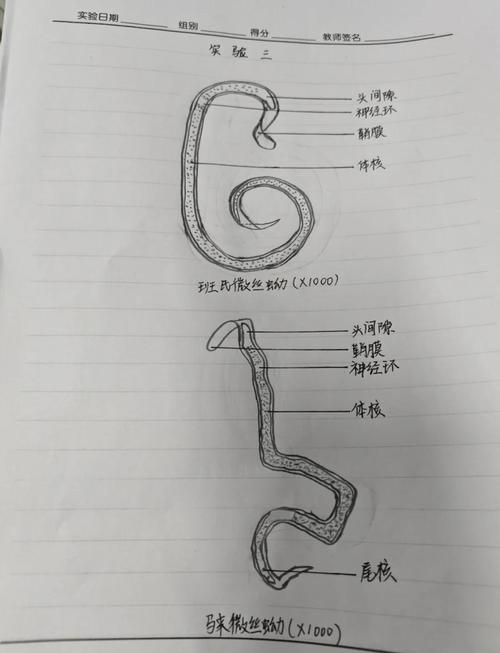 实验日期 组别 得分 教师签名
实验三
头间隙
神经环
鞘膜
体核
班氏微丝蚴(X1000)
头间隙
鞘膜
神经环
体核
尾核
马来微丝蚴(X1000)